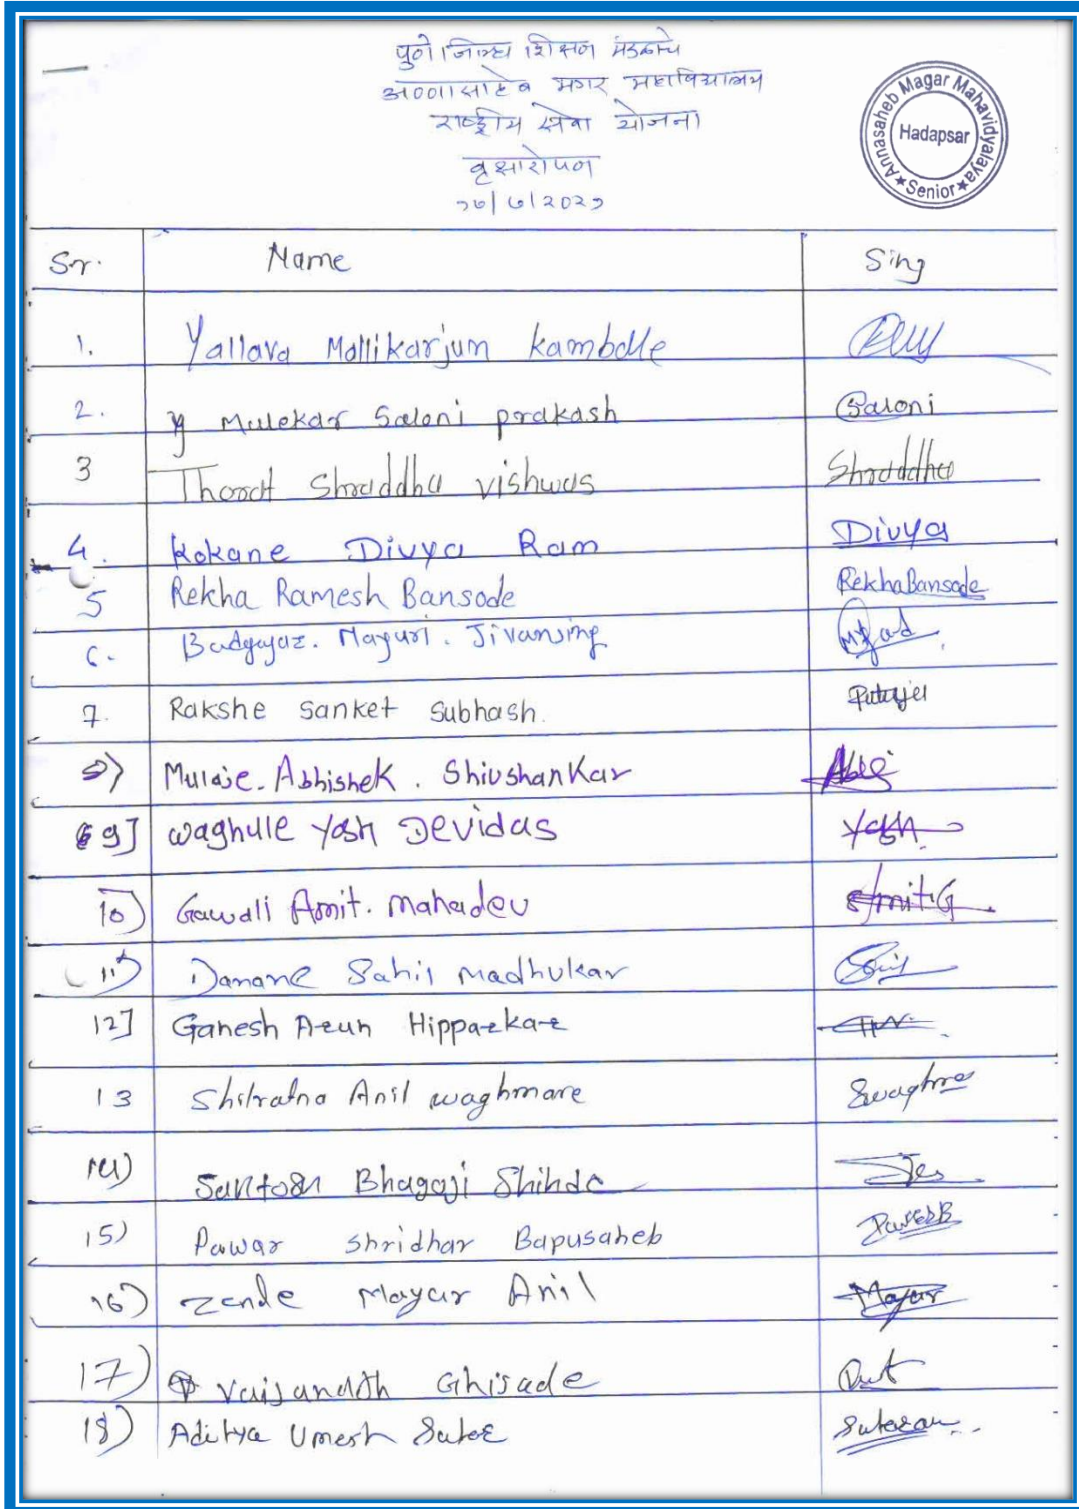 पुणे जिल्हा शिक्षण मंडळाचे
अण्णासाहेब मगर महाविद्यालय
राष्ट्रीय सेवा योजना
वृक्षारोपण
१७/७/२०२१
Annasaheb Magar Mahavidyalaya
Hadapsar
★ Senior ★
Sr. Name Sing
1. Yallava Mallikarjum Kamble
2. Mulekar Saloni prakash Saloni
3 Thorat Shraddha vishwas Shraddha
4. Kokane Divya Ram Divya
5 Rekha Ramesh Bansode Rekha Bansode
6. Mayuri. Jivansing
7. Rakshe Sanket Subhash.
8) Mulaje. Abhishek. Shivshankar Abhi
9] waghule Yash Devidas Yash
10) Gawali Amit. Mahadev Amit.G
11) Danane Sahil Madhukar
12] Ganesh Arun Hipparkar
13 Shilratna Anil waghmare Swaghre
14) Santosh Bhagaji Shinde
15) Pawar Shridhar Bapusaheb
16) Zende Mayur Anil Mayur
17) Vaijanath Ghisade
18) Aditya Umesh Sutar